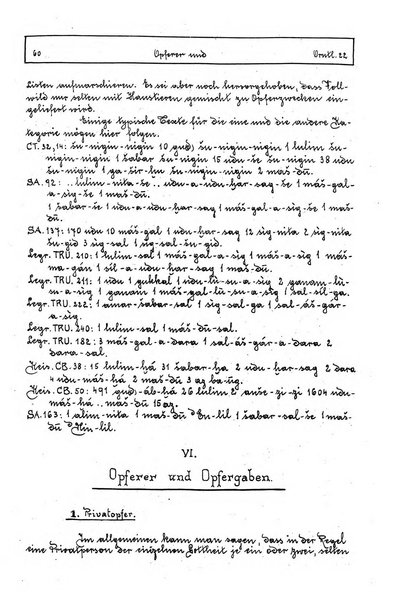 60 Opferer und Orntl. 22
Listen aufmarschieren. Es sei aber noch hervorgehoben, dass Voll-
wild nur selten mit Haustieren gemischt zu Opferzwecken ein-
geliefert wird.
Einige typische Texte für die eine und die andere Ka-
tegorie mögen hier folgen.
CT. 32, 14: šu-nigin-nigin 10 gud šu-nigin-nigin 1 lulim šu-
nigin-nigin 1 šabar šu-nigin 15 udu-še šu-nigin 38 udu
šu-nigin 1 ga-šir-hu šu-nigin-nigin 2 maš-dū.
SA. 92: .. lulim-nita-še .. udu-a-udu-har-sag-še 1 máš-gal-
a-sig-še 1 maš-dū.
1 šabar-še 1 udu-a-udu-har-sag 1 máš-gal-a-sig-še 1 maš-
dū.
SA. 137: 170 udu 10 máš-gal 1 udu-har-sag 12 sig-nita 2 sig-nita
šu-gid 3 sig-sal 1 sig-sal-šu-gid.
Legr. TRU. 210: 1 lulim-sal 1 máš-gal-a-sig 1 maš-a-sig 1 máš-
ma-gán 1 sil-a-udu-har-sag 1 maš-dū.
Legr. TRU. 211: 1 udu gukkal 1 udu-lu-su-a-sig 2 ganam-lu-
su-a-sig 1 ganam 1 máš-gal-lu-su-a-sig 1 sal-sil-ga.
Legr. TRU. 222: 1 amar-šabar-sal 1 sig-sal-ga 1 sal-áš-gár-
a-sig.
Legr. TRU. 240: 1 lulim-sal 1 maš-dū-sal.
Legr. TRU. 182: 3 máš-gal-a-dara 1 sal-áš-gár-a-dara 2
dara-sal.
Keis. CB. 38: 15 lulim-há 31 šabar-há 2 udu-har-sag 2 dara
4 udu-máš-há 2 maš-dū 3 az ba-ug.
Keis. CB. 50: 491 gud-áb-há 26 lulim 2 anše-zi-zi 1604 udu-
máš-há .. maš-dū 15 az.
SA. 163: 1 alim-nita 1 maš-dū En-lil 1 šabar-sal-še 1 maš-
dū Nin-lil.
VI.
Opferer und Opfergaben.
1. Privatopfer.
Im allgemeinen kann man sagen, dass in der Regel
eine Privatperson der einzelnen Gottheit je ein oder zwei, selten